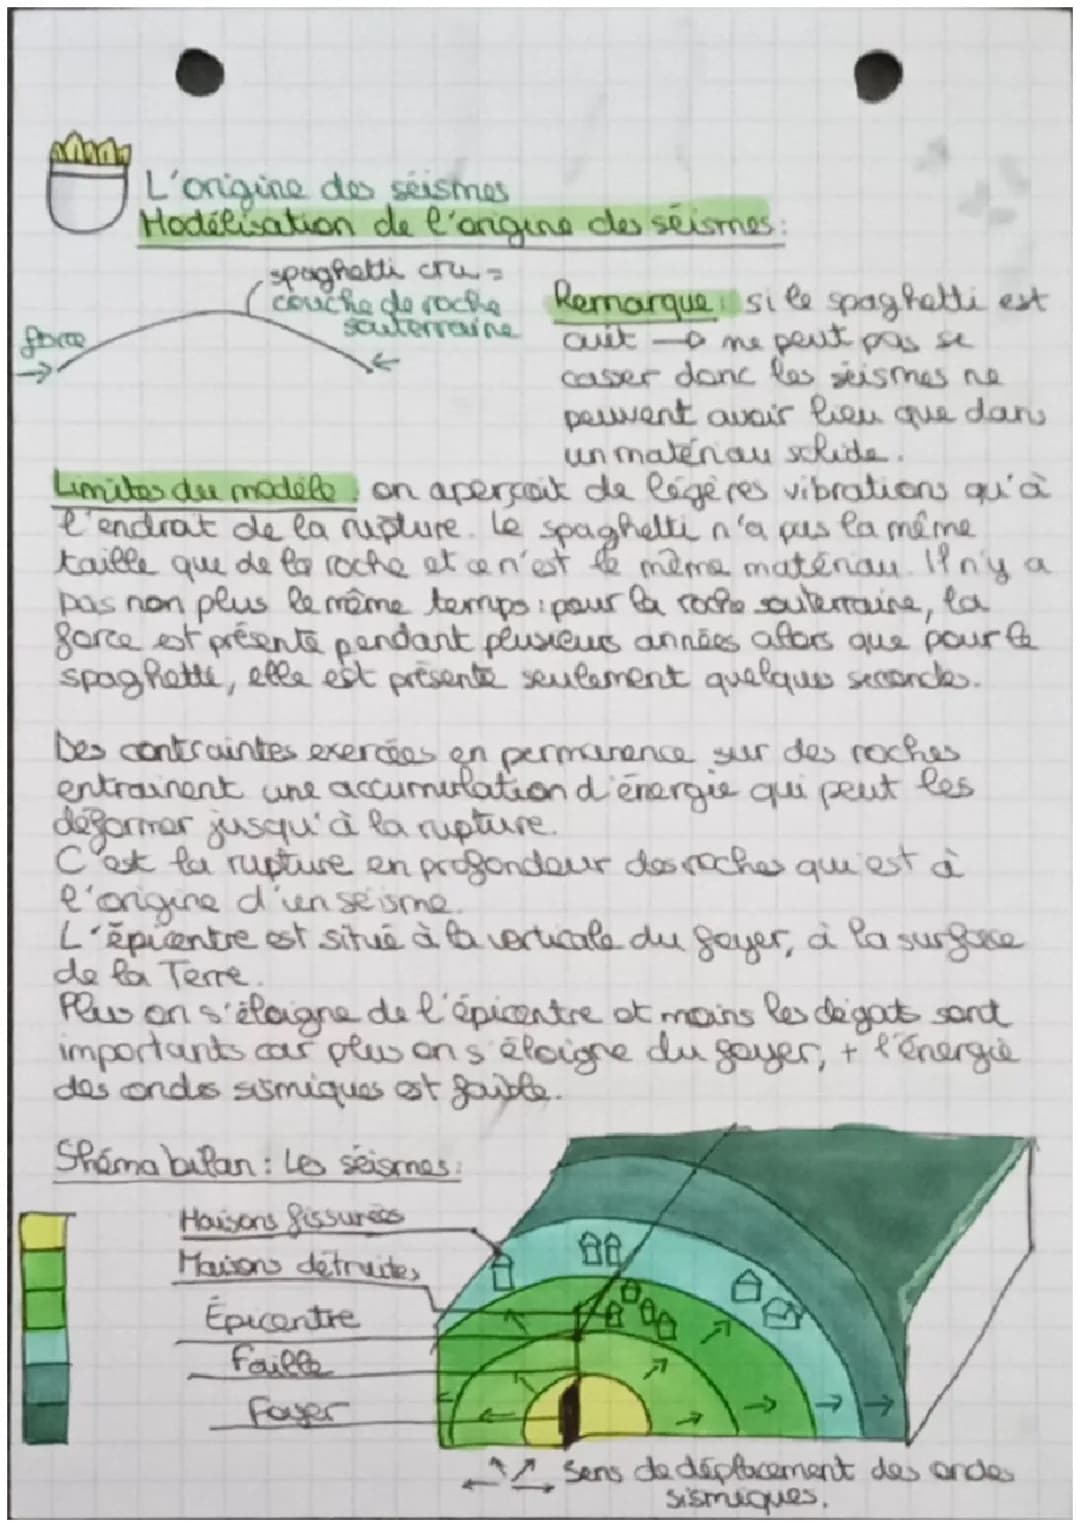 L'origine des séismes
Modélisation de l'origine des séismes:
spaghetti cru =
couche de roche
souterraine
force
Remarque: si le spaghetti est
cuit → ne peut pas se
casser donc les séismes ne
peuvent avoir lieu que dans
un matériau solide.
Limites du modèle: on aperçoit de légères vibrations qu'à
l'endroit de la rupture. Le spaghetti n'a pas la même
taille que de la roche et ce n'est le même matériau. Il n'y a
pas non plus le même temps: pour la roche souterraine, la
force est présente pendant plusieurs années alors que pour le
spaghetti, elle est présente seulement quelques secondes.
Des contraintes exercées en permanence sur des roches
entrainent une accumulation d'énergie qui peut les
déformer jusqu'à la rupture.
C'est la rupture en profondeur des roches qui est à
l'origine d'un séisme.
L'épicentre est situé à la verticale du foyer, à la surface
de la Terre.
Plus on s'éloigne de l'épicentre et moins les dégats sont
importants car plus on s'éloigne du foyer, + l'énergie
des ondes sismiques est faible.
Shéma bilan: Les séismes:
Maisons fissurées
Maisons détruites
Épicentre
Faille
Foyer
Sens de déplacement des ondes
sismiques.